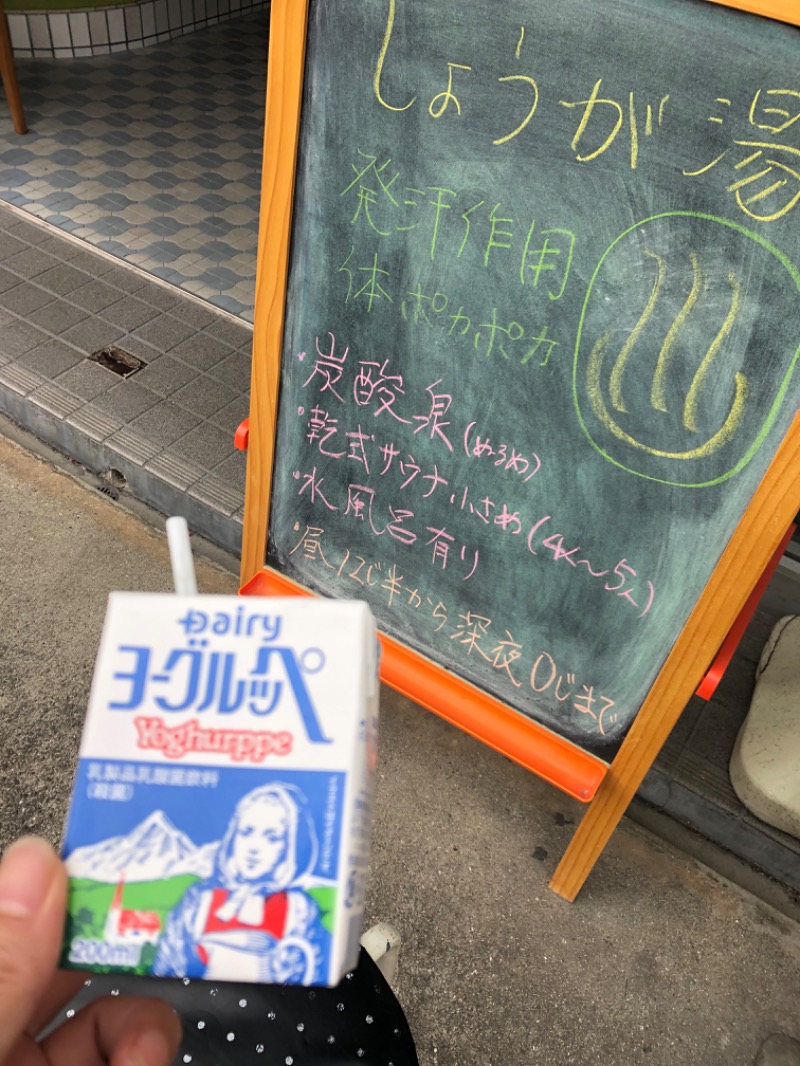 しょうが湯
発汗作用
体ポカポカ
・炭酸泉(ぬるめ)
・乾式サウナ小さめ(4人〜5人)
・水風呂有り
・昼12じ半から深夜0じまで
Dairy
ヨーグルッペ
Yoghurppe
乳製品乳酸菌飲料
(殺菌)
200ml